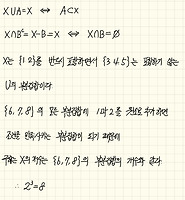 X∪A=X ⇔ A⊂X
X∩Bᶜ=X-B=X ⇔ X∩B=∅
X는 {1 2}를 반드시 포함하면서 {3 4 5}는 포함하지 않는
U의 부분집합이다
{6, 7, 8}의 모든 부분집합에 1과 2를 추가하면
조건을 만족시키는 부분집합이 되기 때문에
X의 개수는 {6, 7, 8}의 부분집합의 개수와 같다
∴ 2³=8